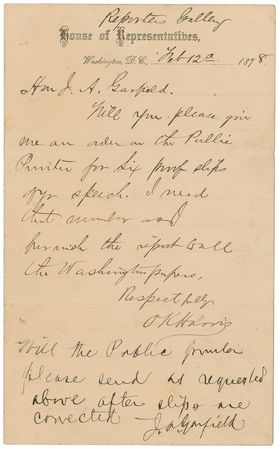 Reporters Gallery
House of Representatives,
Washington, D.C., Feb 12th 1878
Hon J. A. Garfield.
Will you please give
me an order on the Public
Printer for six proof slips
of yr speech. I need
that number as I
furnish the report to all
the Washington papers,
Respectfully
O K Harris
Will the Public Printer
please send as requested
above after slips are
corrected — J A Garfield